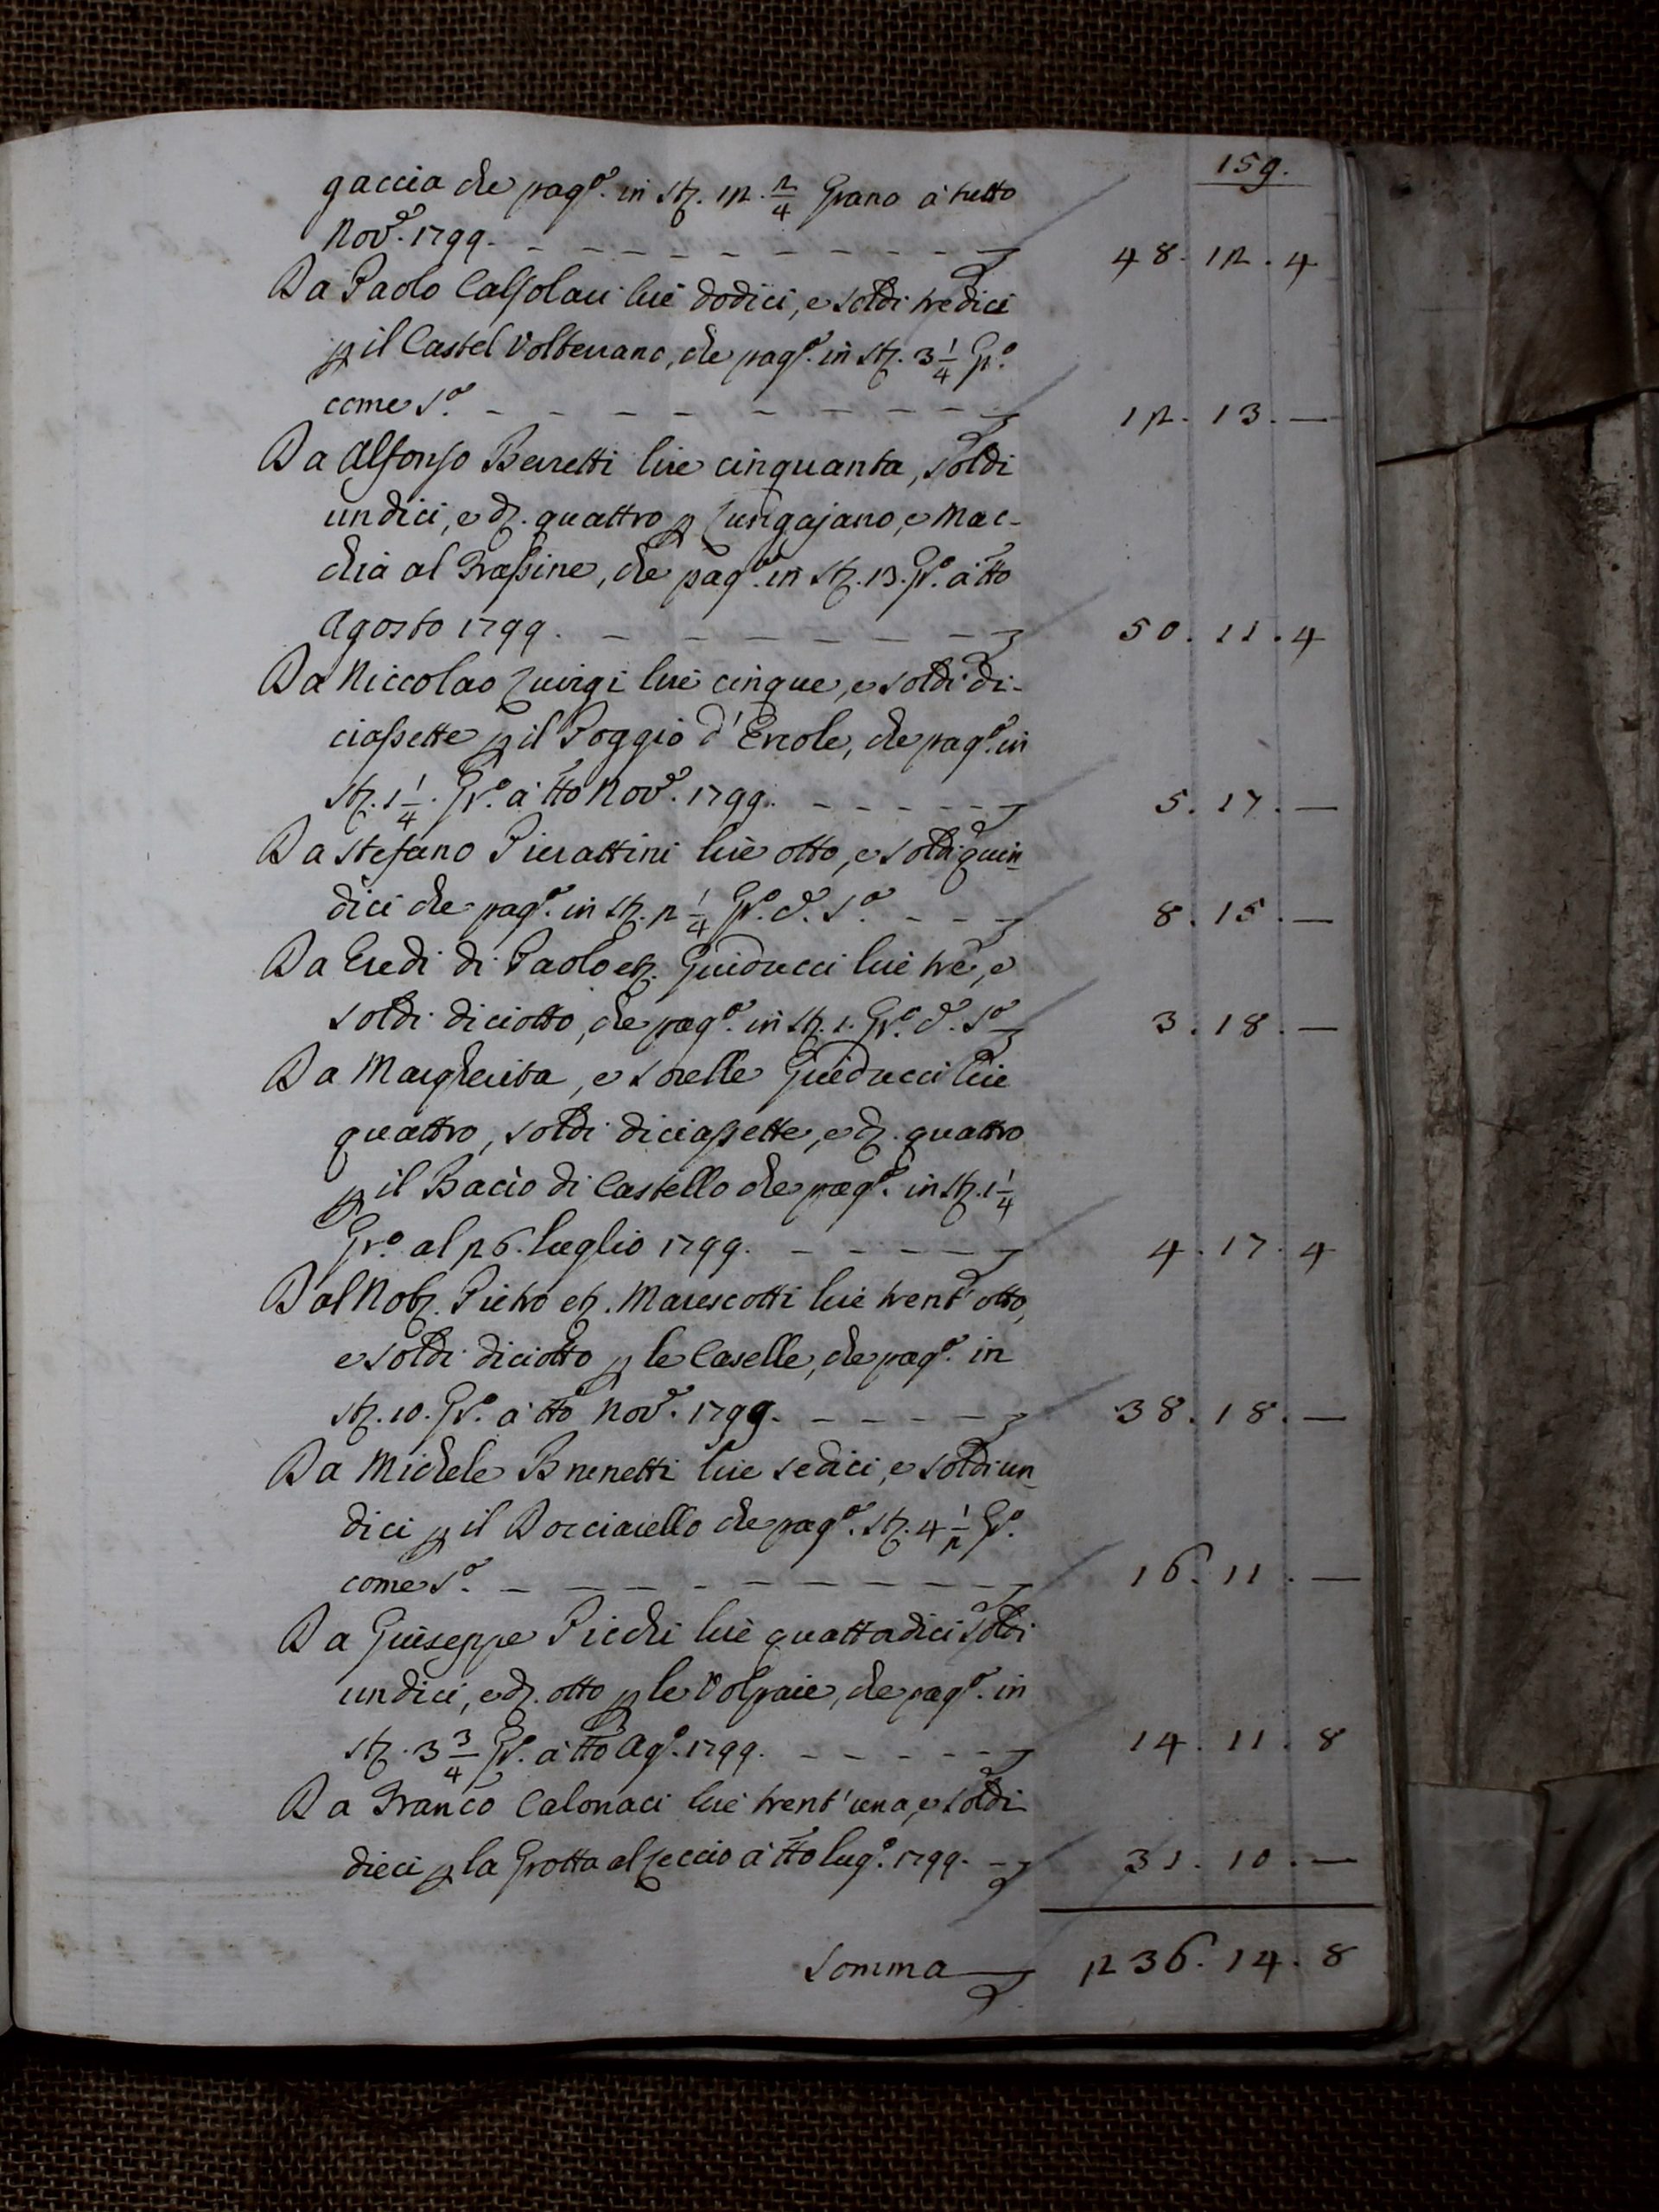 159.
gaccia che pag.º in stz. 12. 2/4 Grano à tutto
Nov.e 1799. — 48. 12. 4
Da Paolo Calsolari lire dodici, e soldi tredici
p il Castel Volterrano, che pag.º in stz. 3 1/4 Gr.º
come s.ª — 12. 13. —
Da Alfonso Berretti lire cinquanta, soldi
undici, e dz. quattro p Lungajano, e Mac-
chia al Frassine, che pag.º in stz. 13. Gr.º à tto
Agosto 1799. — 50. 11. 4
Da Niccolao Luirgi lire cinque, e soldi di-
ciassette p il Poggio d'Ercole, che pag.º in
stz. 1 1/4. Gr.º à tto Nov.e 1799. — 5. 17. —
Da Stefano Pierattini lire otto, e soldi quin-
dici che pag.º in stz. 2 1/4 Gr.º d. s.ª — 8. 15. —
Da Eredi di Paolo etz. Guiducci lire trè, e
soldi diciotto, che pag.º in stz. 1. Gr.º d. s.ª — 3. 18. —
Da Margherita, e Sorelle Guiducci lire
quattro, soldi diciassette, e dz. quattro
p il Bacìo di Castello che pag.º in stz. 1 1/4
Gr.º al 26. Luglio 1799. — 4. 17. 4
Dal Nobz. Pietro etz. Marescotti lire trent'otto,
e soldi diciotto p le Caselle, che pag.º in
stz. 10. Gr.º à tto Nov.e 1799. — 38. 18. —
Da Michele Brunetti lire sedici, e soldi un-
dici p il Docciarello che pag.º stz. 4 1/2 Gr.º
come s.ª — 16. 11. —
Da Giuseppe Picchi lire quattordici soldi
undici, e dz. otto p le Volpaie, che pag.º in
stz. 3 3/4 Gr.º à tto Ag.º 1799. — 14. 11. 8
Da Franco Calonaci lire trent'una, e soldi
dieci p la Grotta al Leccio à tto lug.º 1799. — 31. 10. —
Somma 236. 14. 8